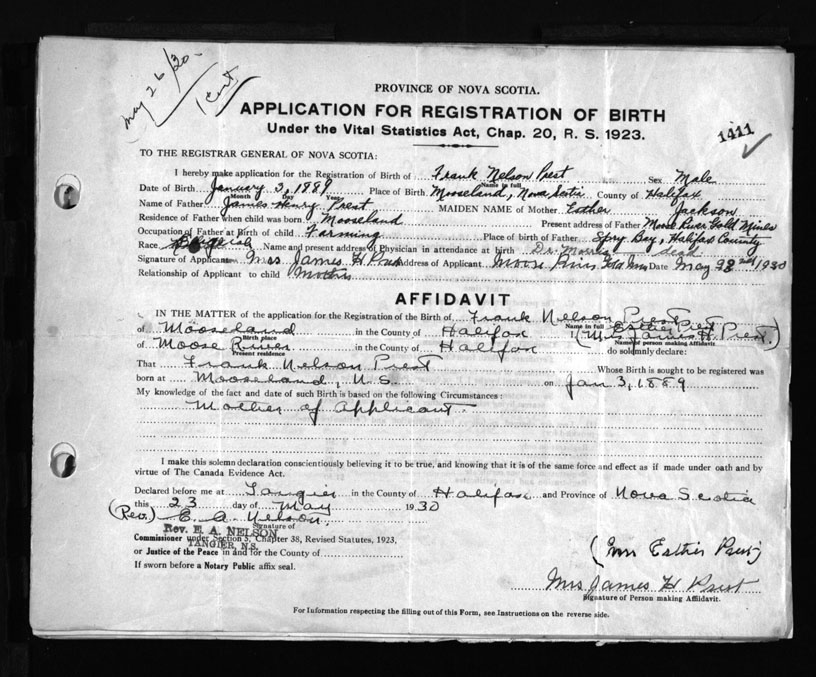 May 26/30-
PROVINCE OF NOVA SCOTIA.
APPLICATION FOR REGISTRATION OF BIRTH
Under the Vital Statistics Act, Chap. 20, R. S. 1923.
1411
TO THE REGISTRAR GENERAL OF NOVA SCOTIA:
I hereby make application for the Registration of Birth of Frank Nelson Prest Sex Male
Name in full
Date of Birth January 3, 1889 Place of Birth Mooseland, Nova Scotia County of Halifax
Month Day Year
Name of Father James Henry Prest MAIDEN NAME of Mother Esther Jackson
Residence of Father when child was born Mooseland Present address of Father Moose River Gold Mines
Occupation of Father at Birth of child Farming Place of birth of Father Spry Bay, Halifax County
Race English Name and present address of Physician in attendance at birth Dr. dead
Signature of Applicant Mrs James H Prest Address of Applicant Moose River Gld Mns Date May 1930
Relationship of Applicant to child Mother
AFFIDAVIT
IN THE MATTER of the application for the Registration of the Birth of Frank Nelson Prest
Name in full Esther Prest
of Mooseland in the County of Halifax I, (Mrs James H. Prest)
Birth place Name of person making Affidavit
of Moose River in the County of Halifax do solemnly declare:
Present residence
That Frank Nelson Prest Whose Birth is sought to be registered was
born at Mooseland, N.S. on Jan 3, 1889
My knowledge of the fact and date of such Birth is based on the following Circumstances:
Mother of applicant.
I make this solemn declaration conscientiously believing it to be true, and knowing that it is of the same force and effect as if made under oath and by
virtue of The Canada Evidence Act.
Declared before me at Tangier in the County of Halifax and Province of Nova Scotia
this 23 day of May 1930
(Rev.) E. A. Nelson.
Signature of
Rev. E. A. NELSON
Commissioner under Section 5, Chapter 38, Revised Statutes, 1923,
TANGIER, N.S.
or Justice of the Peace in and for the County of
If sworn before a Notary Public affix seal.
(Mrs Esther Prest)
Mrs James H Prest
Signature of Person making Affidavit.
For Information respecting the filling out of this Form, see Instructions on the reverse side.